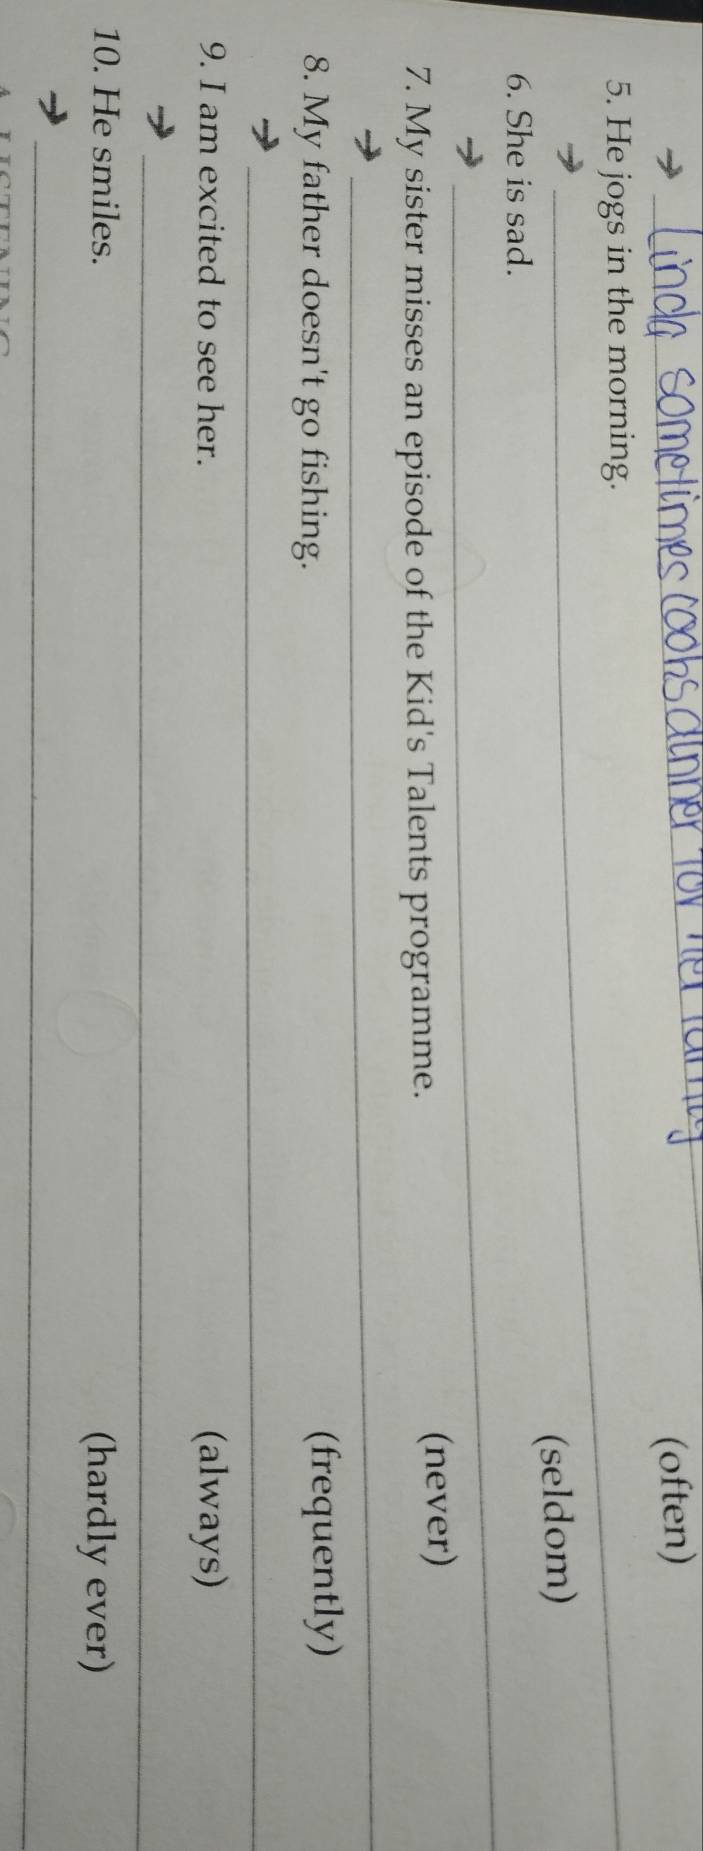 Linda sometimes cooks dinner for her family
5. He jogs in the morning. (often)
6. She is sad. (seldom)
7. My sister misses an episode of the Kid's Talents programme. (never)
8. My father doesn't go fishing. (frequently)
9. I am excited to see her. (always)
10. He smiles. (hardly ever)